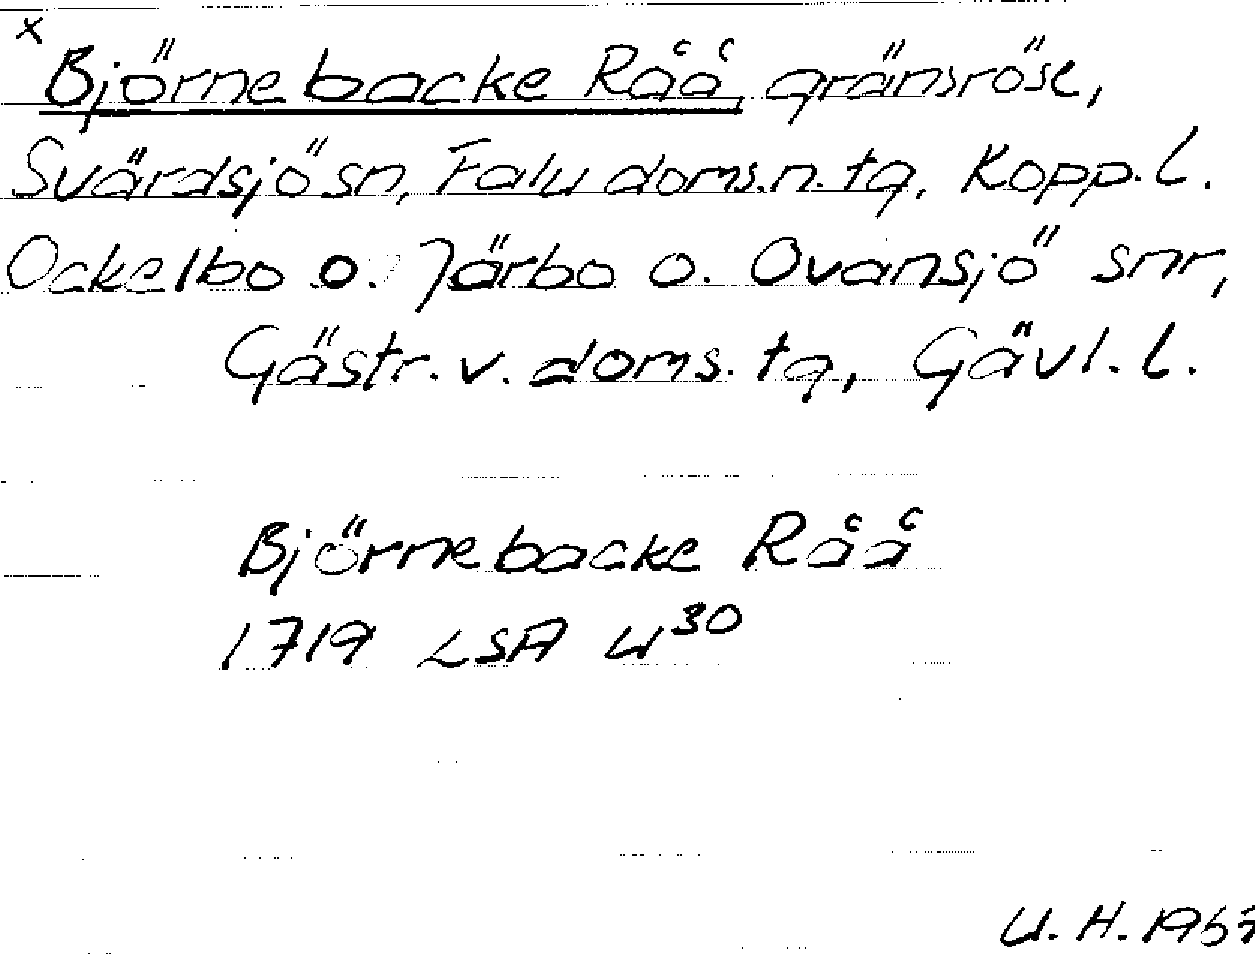 x Björnebacke Råå, gränsröse,
Svärdsjö sn, Falu doms.n. tg, Kopp. l.
Ockelbo o. Järbo o. Ovansjö snr,
Gästr. v. doms. tg, Gävl. l.
Björnebacke Råå
1719 LSA W³⁰
U. H.